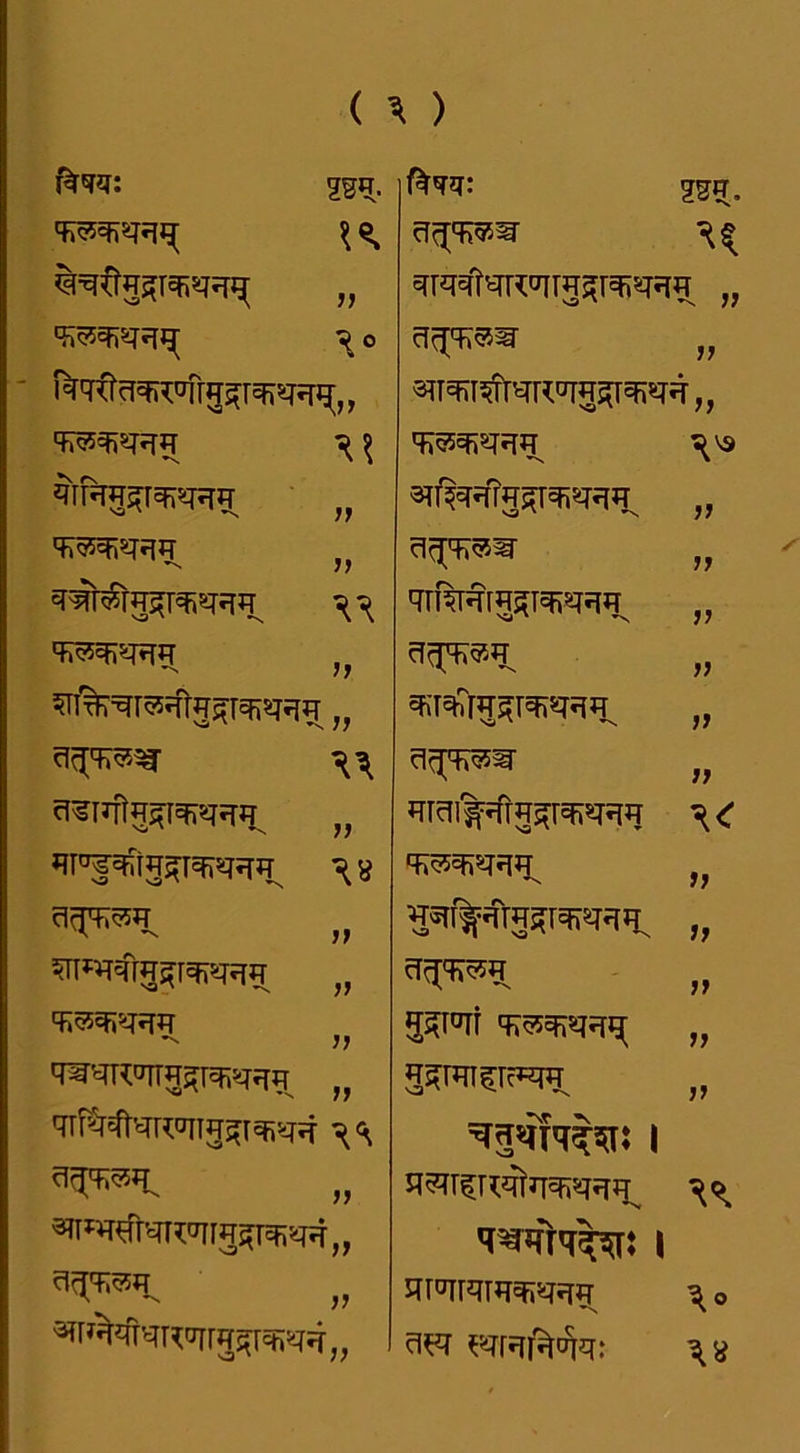 ( ३ )
विषयः पृष्ठम्.
फलकथनम् १९
खेचरीमुद्राकथनम् „
फलकथनम् २०
विपरीतकरणीमुद्राकथनम् „
फलकथनम् २१
योनिमुद्राकथनम् „
फलकथनम् „
वज्रोलीमुद्राकथनम् २२
फलकथनम् „
शक्तिचालनीमुद्राकथनम् „
तत्फलञ्च २३
तडागीमुद्राकथनम् „
माण्डुकीमुद्राकथनम् २४
तत्फलम् „
शाम्भवीमुद्राकथनम् „
फलकथनम् „
पञ्चधारणामुद्राकथनम् „
पार्थिवीधारणामुद्राकथनं २५
तत्फलम् „
आम्भसीधारणामुद्राकथनं „
तत्फलम् „
आग्नेयीधारणामुद्राकथनं „
विषयः पृष्ठम्.
तत्फलञ्च २६
वायवीधारणामुद्राकथनम् „
तत्फलञ्च „
आकाशीधारणामुद्राकथनं „
फलकथनम् २७
अश्विनीमुद्राकथनम् „
तत्फलञ्च „
पाशिनीमुद्राकथनम् „
तत्फलम् „
काकीमुद्राकथनम् „
तत्फलञ्च „
मातङ्गिनीमुद्राकथनम् २८
फलकथनम् „
भुजङ्गिनीमुद्राकथनम् „
तत्फलम् „
मुद्राणां फलकथनम् „
मुद्रामाहात्म्यम् „
चतुर्थोपदेशः ।
प्रत्याहारयोगकथनम् २९
पञ्चमोपदेशः ।
प्राणायामकथनम् ३०
तत्र स्थाननिर्णयः ३४